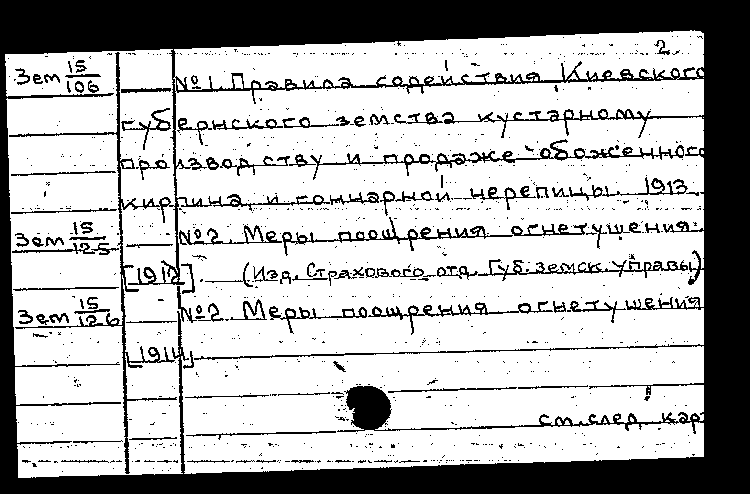 2
Зем 15/106 №1. Правила содействия Киевского
губернского земства кустарному
производству и продаже обожженного
кирпича и гончарной черепицы. 1913.
Зем 15/125 №2. Меры поощрения огнетушения.
[1912]. (Изд. Страхового отд. Губ. земск. управы)
Зем 15/126 №2. Меры поощрения огнетушения
[1914]
см. след. кар